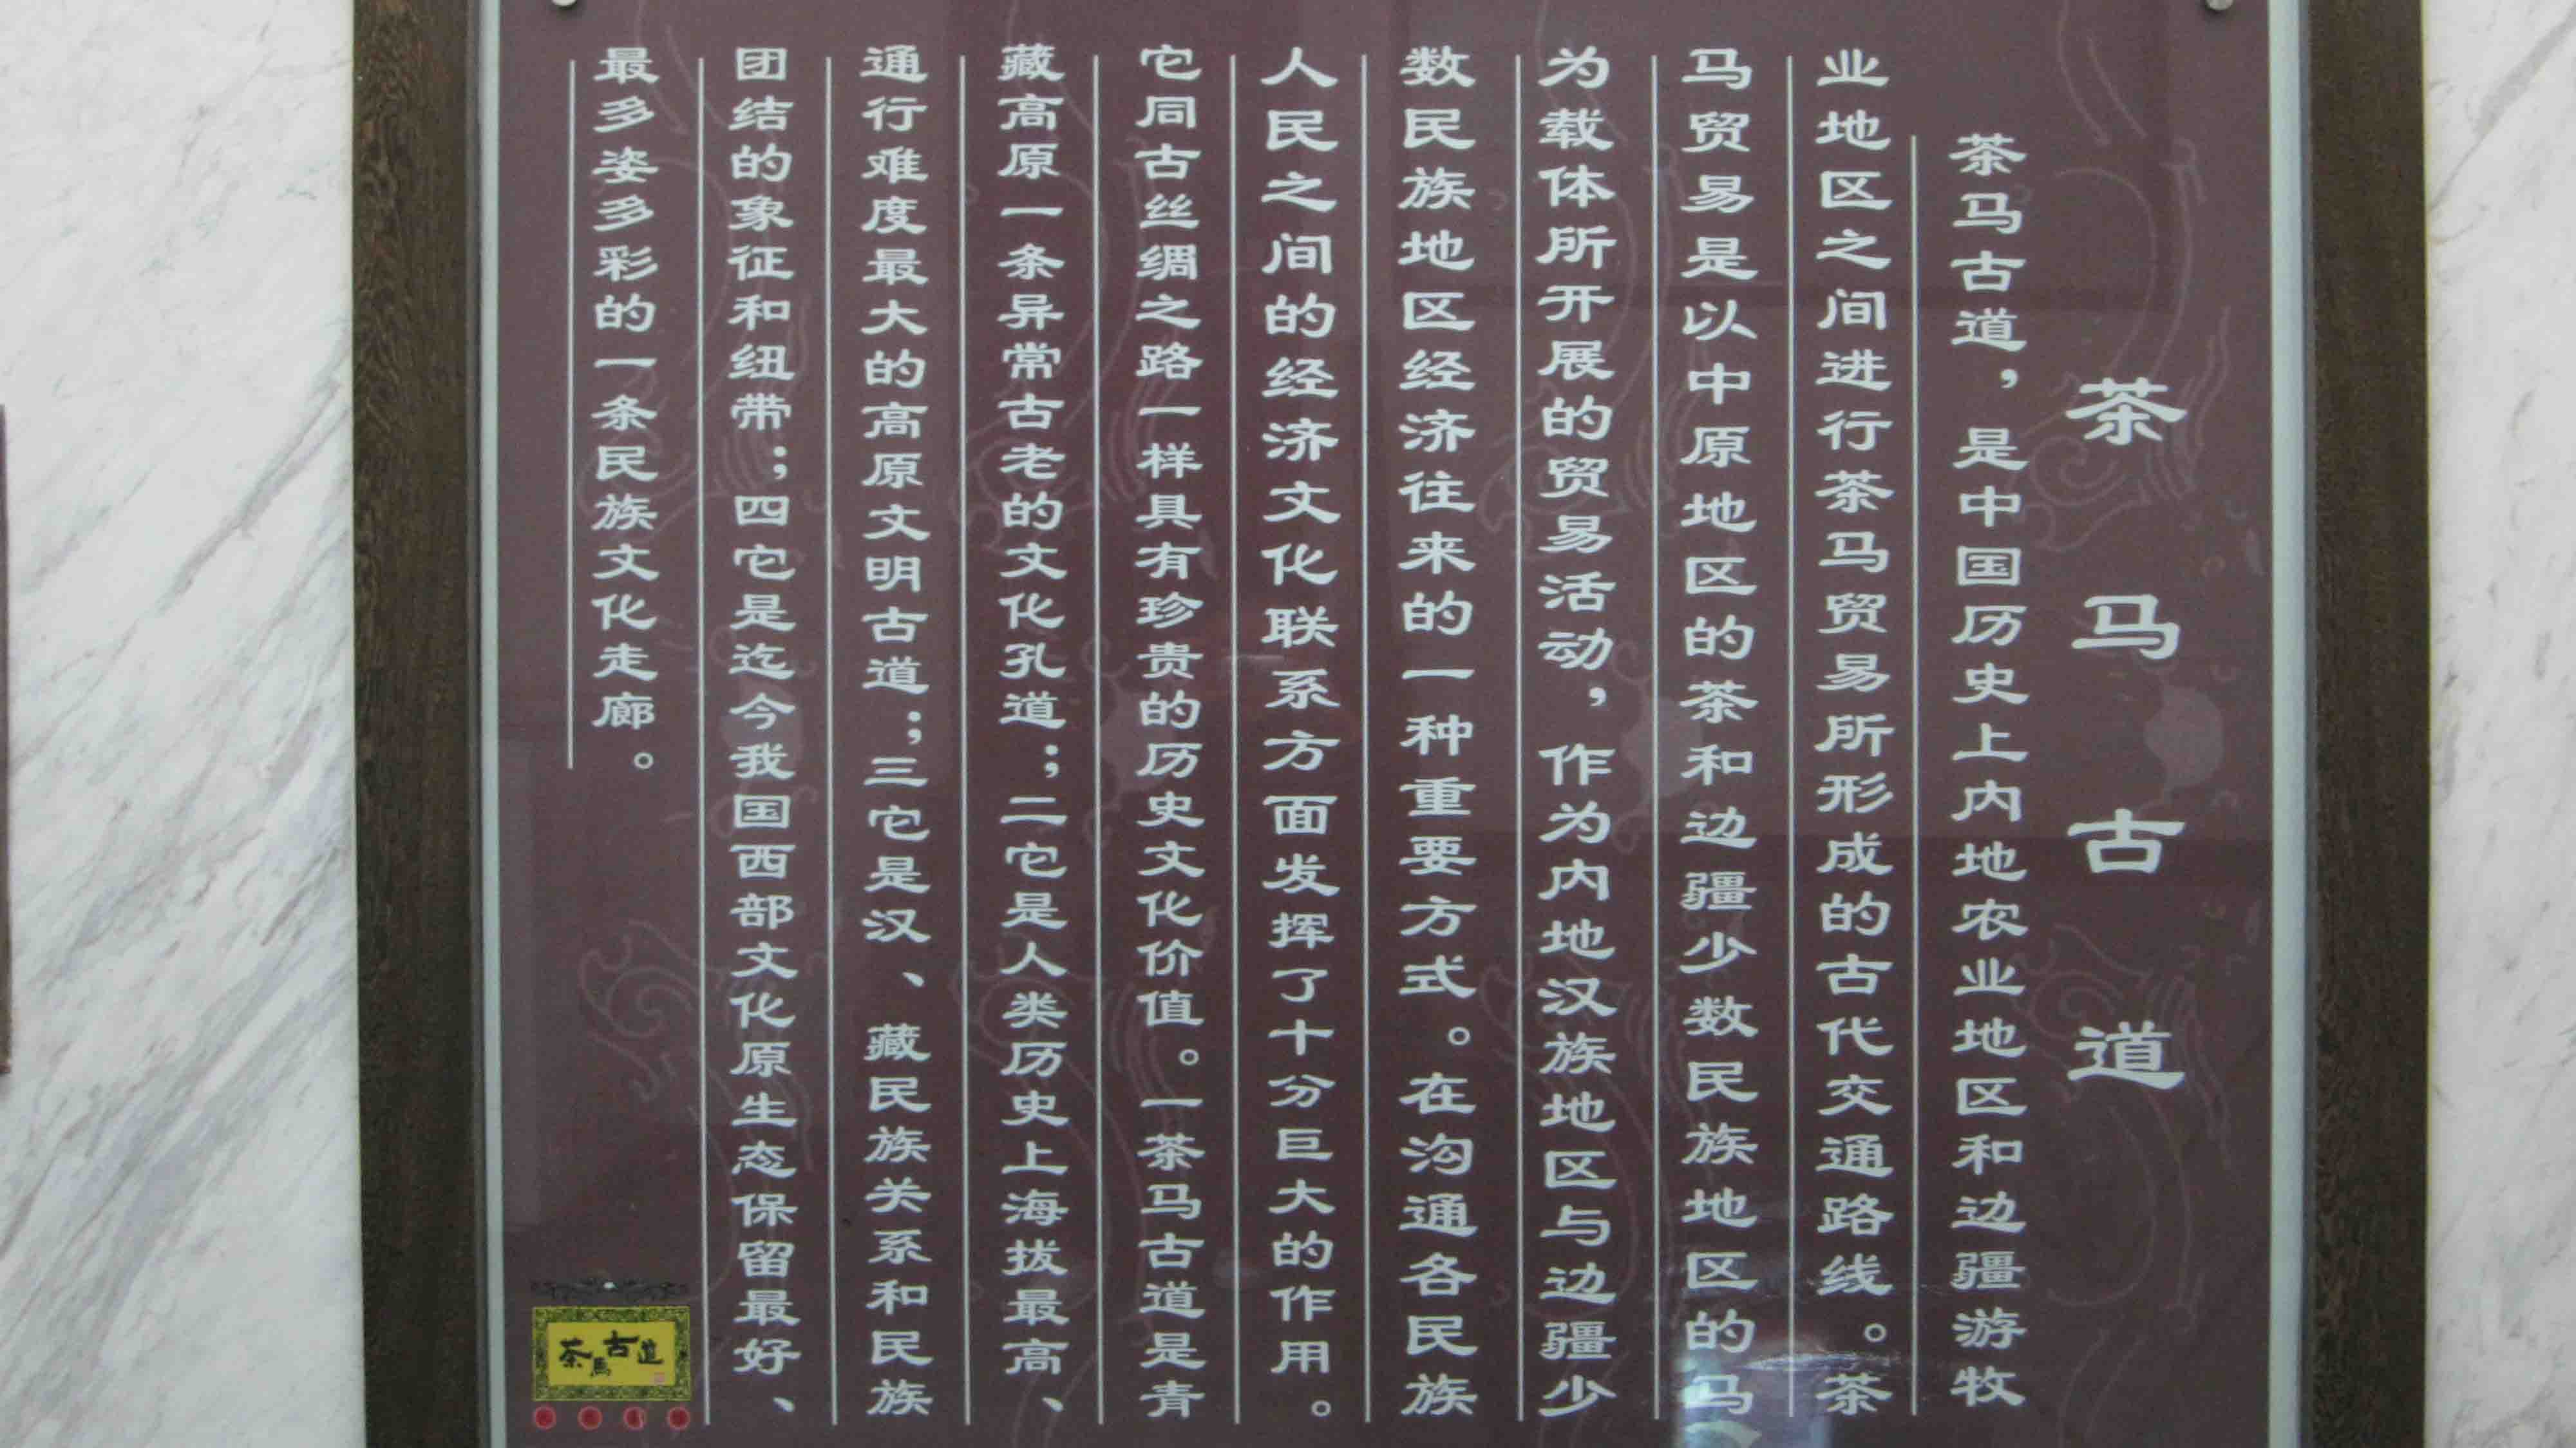 茶马古道
茶马古道，是中国历史上内地农业地区和边疆游牧
业地区之间进行茶马贸易所形成的古代交通路线。茶
马贸易是以中原地区的茶和边疆少数民族地区的马
为载体所开展的贸易活动，作为内地汉族地区与边疆少
数民族地区经济往来的一种重要方式。在沟通各民族
人民之间的经济文化联系方面发挥了十分巨大的作用。
它同古丝绸之路一样具有珍贵的历史文化价值。一茶马古道是青
藏高原一条异常古老的文化孔道；二它是人类历史上海拔最高、
通行难度最大的高原文明古道；三它是汉、藏民族关系和民族
团结的象征和纽带；四它是迄今我国西部文化原生态保留最好、
最多姿多彩的一条民族文化走廊。
茶馬古道